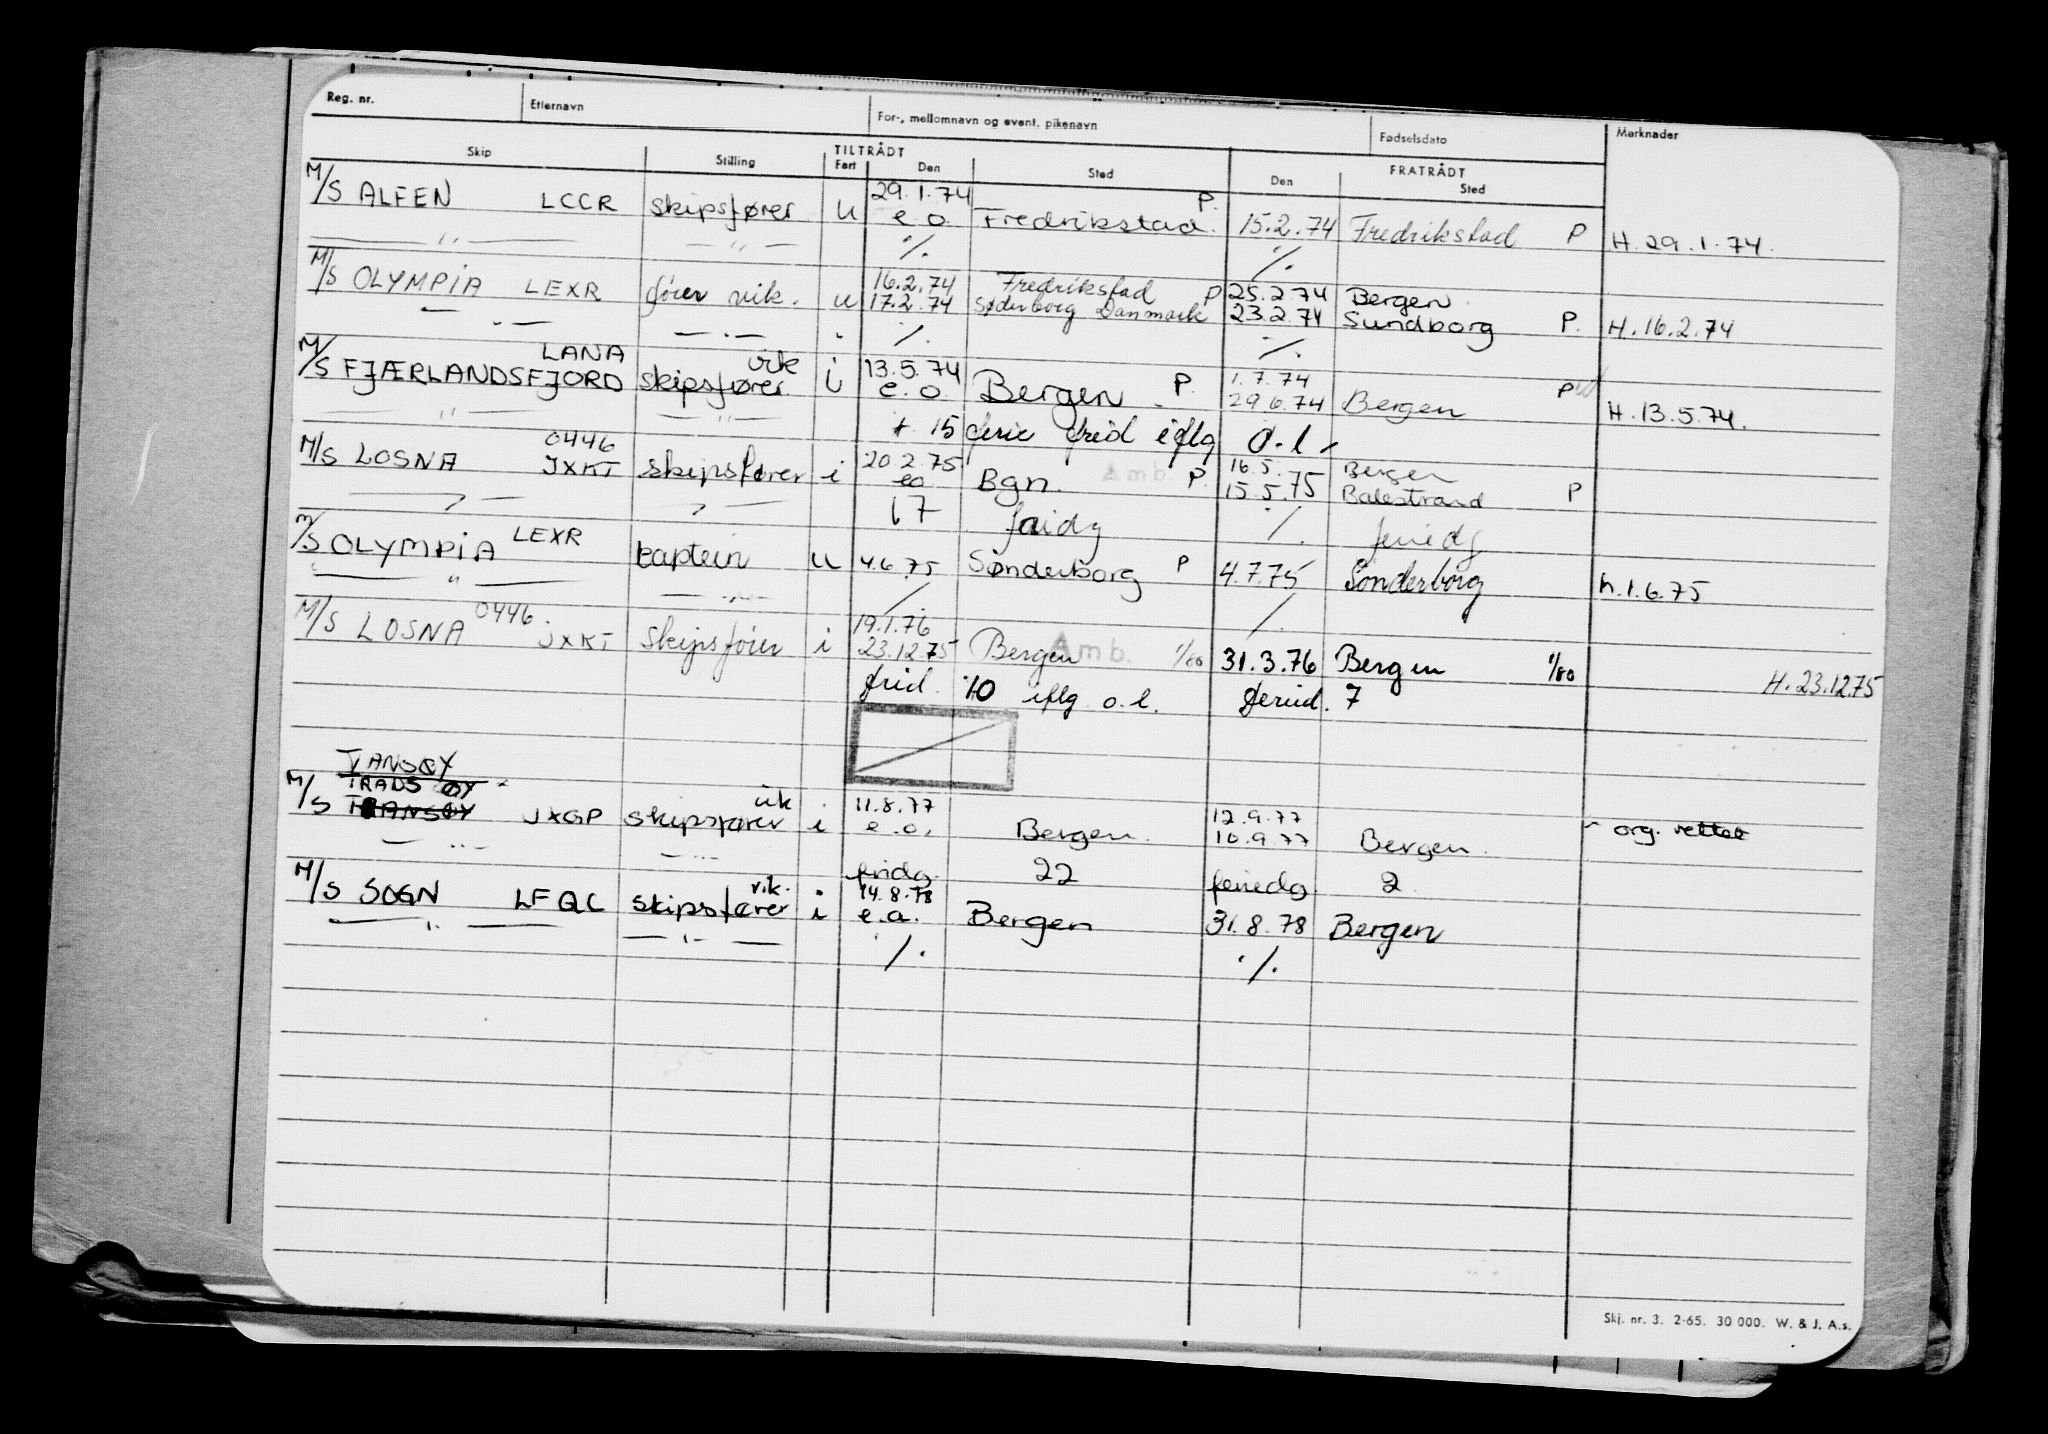 Reg. nr. Etternavn For-, mellomnavn og event. pikenavn Fødselsdato Merknader
Skip Stilling TILTRÅDT Fart Den Sted FRATRÅDT Den Sted
29.1.74 P.
M/S ALFEN LCCR skipsfører u e.o. Fredrikstad 15.2.74 Fredrikstad P H.29.1.74.
—"— —"— ./. ./.
16.2.74 Fredrikstad P 25.2.74 Bergen
M/S OLYMPIA LEXR fører vik. u 17.2.74 Søderborg Danmark 23.2.74 Sundborg P. H.16.2.74
—"— —"— " ./. ./.
LANA vik i 13.5.74 1.7.74
M/S FJÆRLANDSFJORD skipsfører i e.o Bergen P. 29.6.74 Bergen P H.13.5.74.
—"— —"— + 15 ferie frid iflg o.l.
0446 20.2.75 Amb. 16.5. Bergen
M/S LOSNA JXKT skipsfører i eo Bgn. P. 15.5.75 Balestrand P
—"— —"— 17 ./. feriedg
M/S OLYMPIA LEXR kaptein u 4.6.75 Sønderborg P 4.7.75 Sønderborg h.1.6.75
—"— —"— ./. ./.
0446. 19.1.76
M/S LOSNA JXKT skipsfører i 23.12.75 Bergen Amb. 1/80 31.3.76 Bergen 1/80 H.23.12.75
frid. 10 iflg o.l. feried. 7
TANSØY
TRANSØY
vik 11.8.77 12.9.77
M/S TRANSØY JXGP skipsfører i e.o. Bergen. 10.9.77 Bergen. org. rettet
—"— —"— 22 feriedg 2
vik. 14.8.78
M/S SOGN LFQC skipsfører i e.o. Bergen 31.8.78 Bergen
—"— —"— ./. ./.
Skj. nr. 3. 2-65. 30 000. W. & J. A.s.